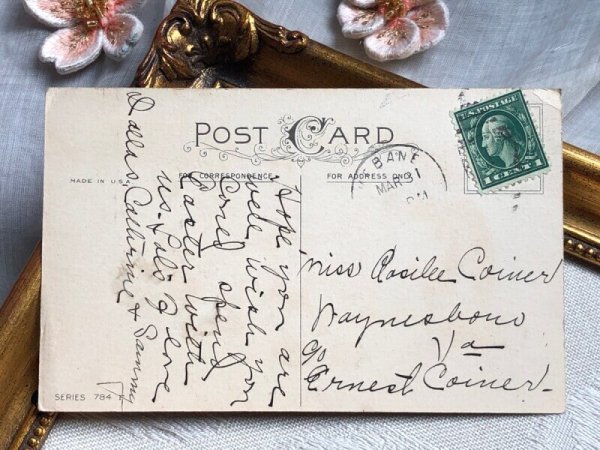 POST CARD
FOR CORRESPONDENCE
FOR ADDRESS ONLY
MADE IN U.S.A.
BANE
MAR 31
U.S. POSTAGE
1 CENT 1
Hope you are
well wish you
could spend
Easter with
us. Lots of love
Dallas, Catherine & Sammy
Miss Rosilee Coiner
Waynesboro
Va
c/o
Ernest Coiner
SERIES 784 F